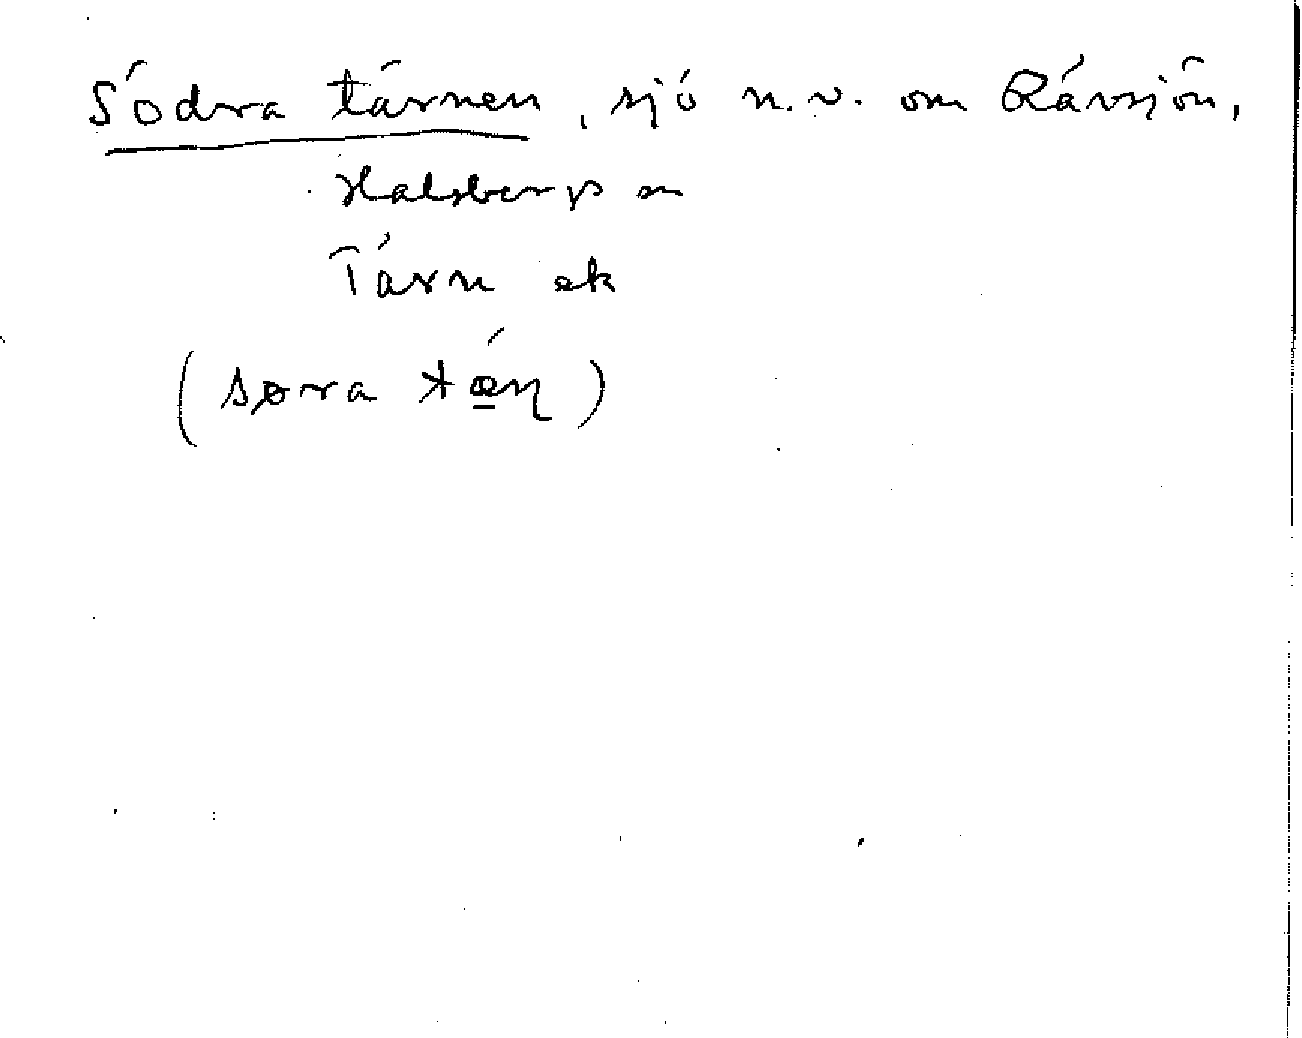 Södra tärnen, sjö n.v. om Rävsjön,
Halsbergs sn
Tärn ek
(søra tǽn)